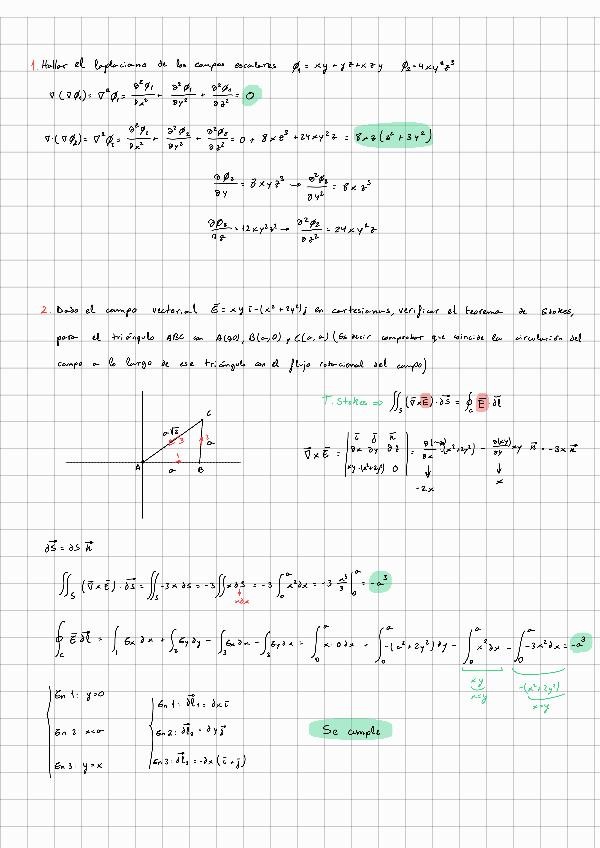 1. Hallar el laplaciano de los campos escalares φ₁ = xy + yz + xzy φ₂ = 4xy²z³
∇·(∇φ₁) = ∇²φ₁ = ∂²φ₁/∂x² + ∂²φ₁/∂y² + ∂²φ₁/∂z² = 0
∇·(∇φ₂) = ∇²φ₂ = ∂²φ₂/∂x² + ∂²φ₂/∂y² + ∂²φ₂/∂z² = 0 + 8xz³ + 24xy²z = 8xz(z² + 3y²)
∂φ₂/∂y = 8xyz³ → ∂²φ₂/∂y² = 8xz³
∂φ₂/∂z = 12xy²z² → ∂²φ₂/∂z² = 24xy²z
2. Dado el campo vectorial E⃗ = xy i - (x² + 2y²) j en cartesianas, verificar el teorema de Stokes,
para el triángulo ABC con A(0,0), B(a,0), C(a,a) (Es decir comprobar que coincide la circulación del
campo a lo largo de ese triángulo con el flujo rotacional del campo)
T. Stokes ⇒ ∬ₛ (∇×E⃗)·dS⃗ = ∮c E⃗ dl⃗
C
a√2
3
2
a
A
1
a
B
∇×E⃗ = | i j k ; ∂x ∂y ∂z ; xy -(x²+2y²) 0 | = ∂(-)/∂x (x²+2y²) - ∂(xy)/∂y xy k⃗ = -3x k⃗
-2x
x
dS⃗ = dS k⃗
∬ₛ (∇×E⃗)·dS⃗ = ∬ₛ -3x dS = -3 ∬ x dS = -3 ∫₀ᵃ x² dx = -3 x³/3 |₀ᵃ = -a³
x dx
∮c E⃗ dl⃗ = ∫₁ Ex dx + ∫₂ Ey dy - ∫₃ Ex dx - ∫₃ Ey dx = ∫₀ᵃ x·0 dx + ∫₀ᵃ -(x² + 2y²) dy - ∫₀ᵃ x² dx - ∫₀ᵃ -3x² dx = -a³
xy
x=y
-(x²+2y²)
x=y
En 1: y=0
En 2: x=a
En 3: y=x
En 1: dl⃗₁ = dx i
En 2: dl⃗₂ = dy j
En 3: dl⃗₃ = -dx (i + j)
Se cumple